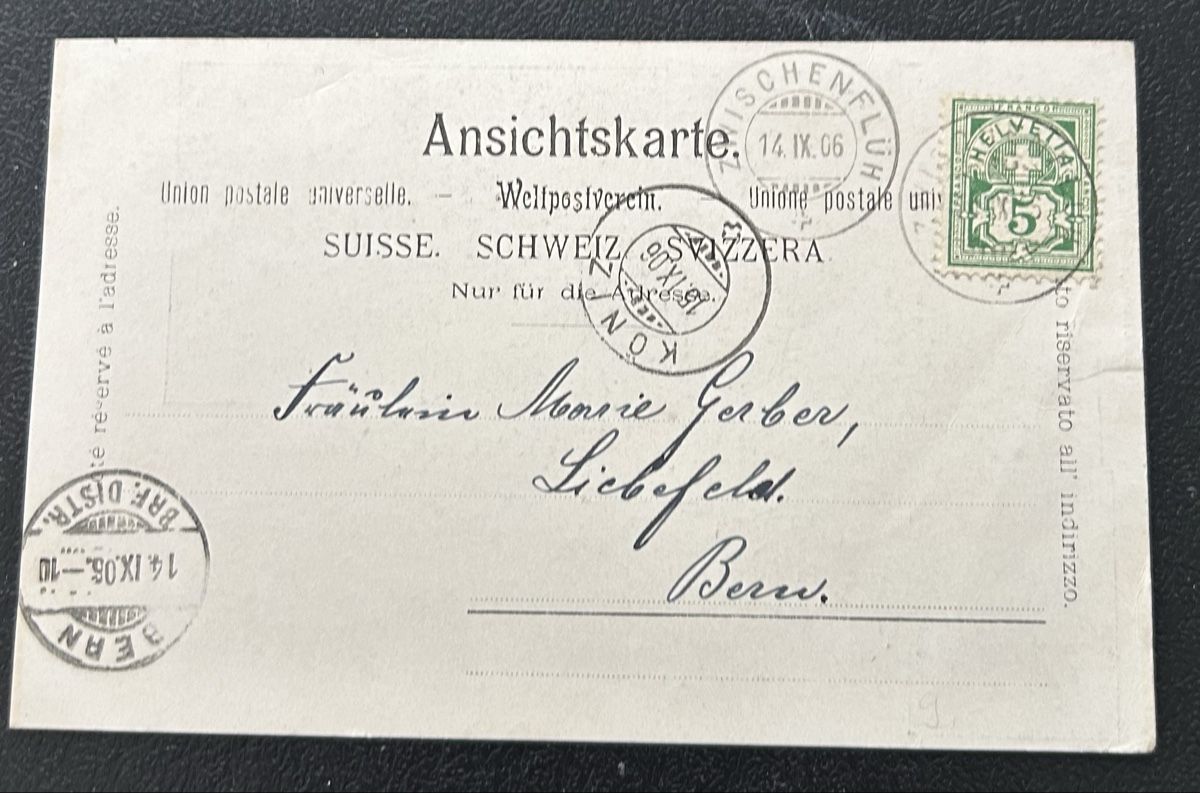 Ansichtskarte.
ZWISCHENFLÜH
14.IX.06
FRANCO
HELVETIA
5
Union postale universelle. – Weltpostverein. – Unione postale uni
SUISSE. SCHWEIZ. SVIZZERA
Nur für die Adresse.
KÖNIZ
15.IX.06
té réservé à l'adresse.
to riservato all' indirizzo.
Fräulein Marie Gerber,
Liebefeld.
Bern.
BERN
14.IX.06.–10
BRF. DISTR.
9.